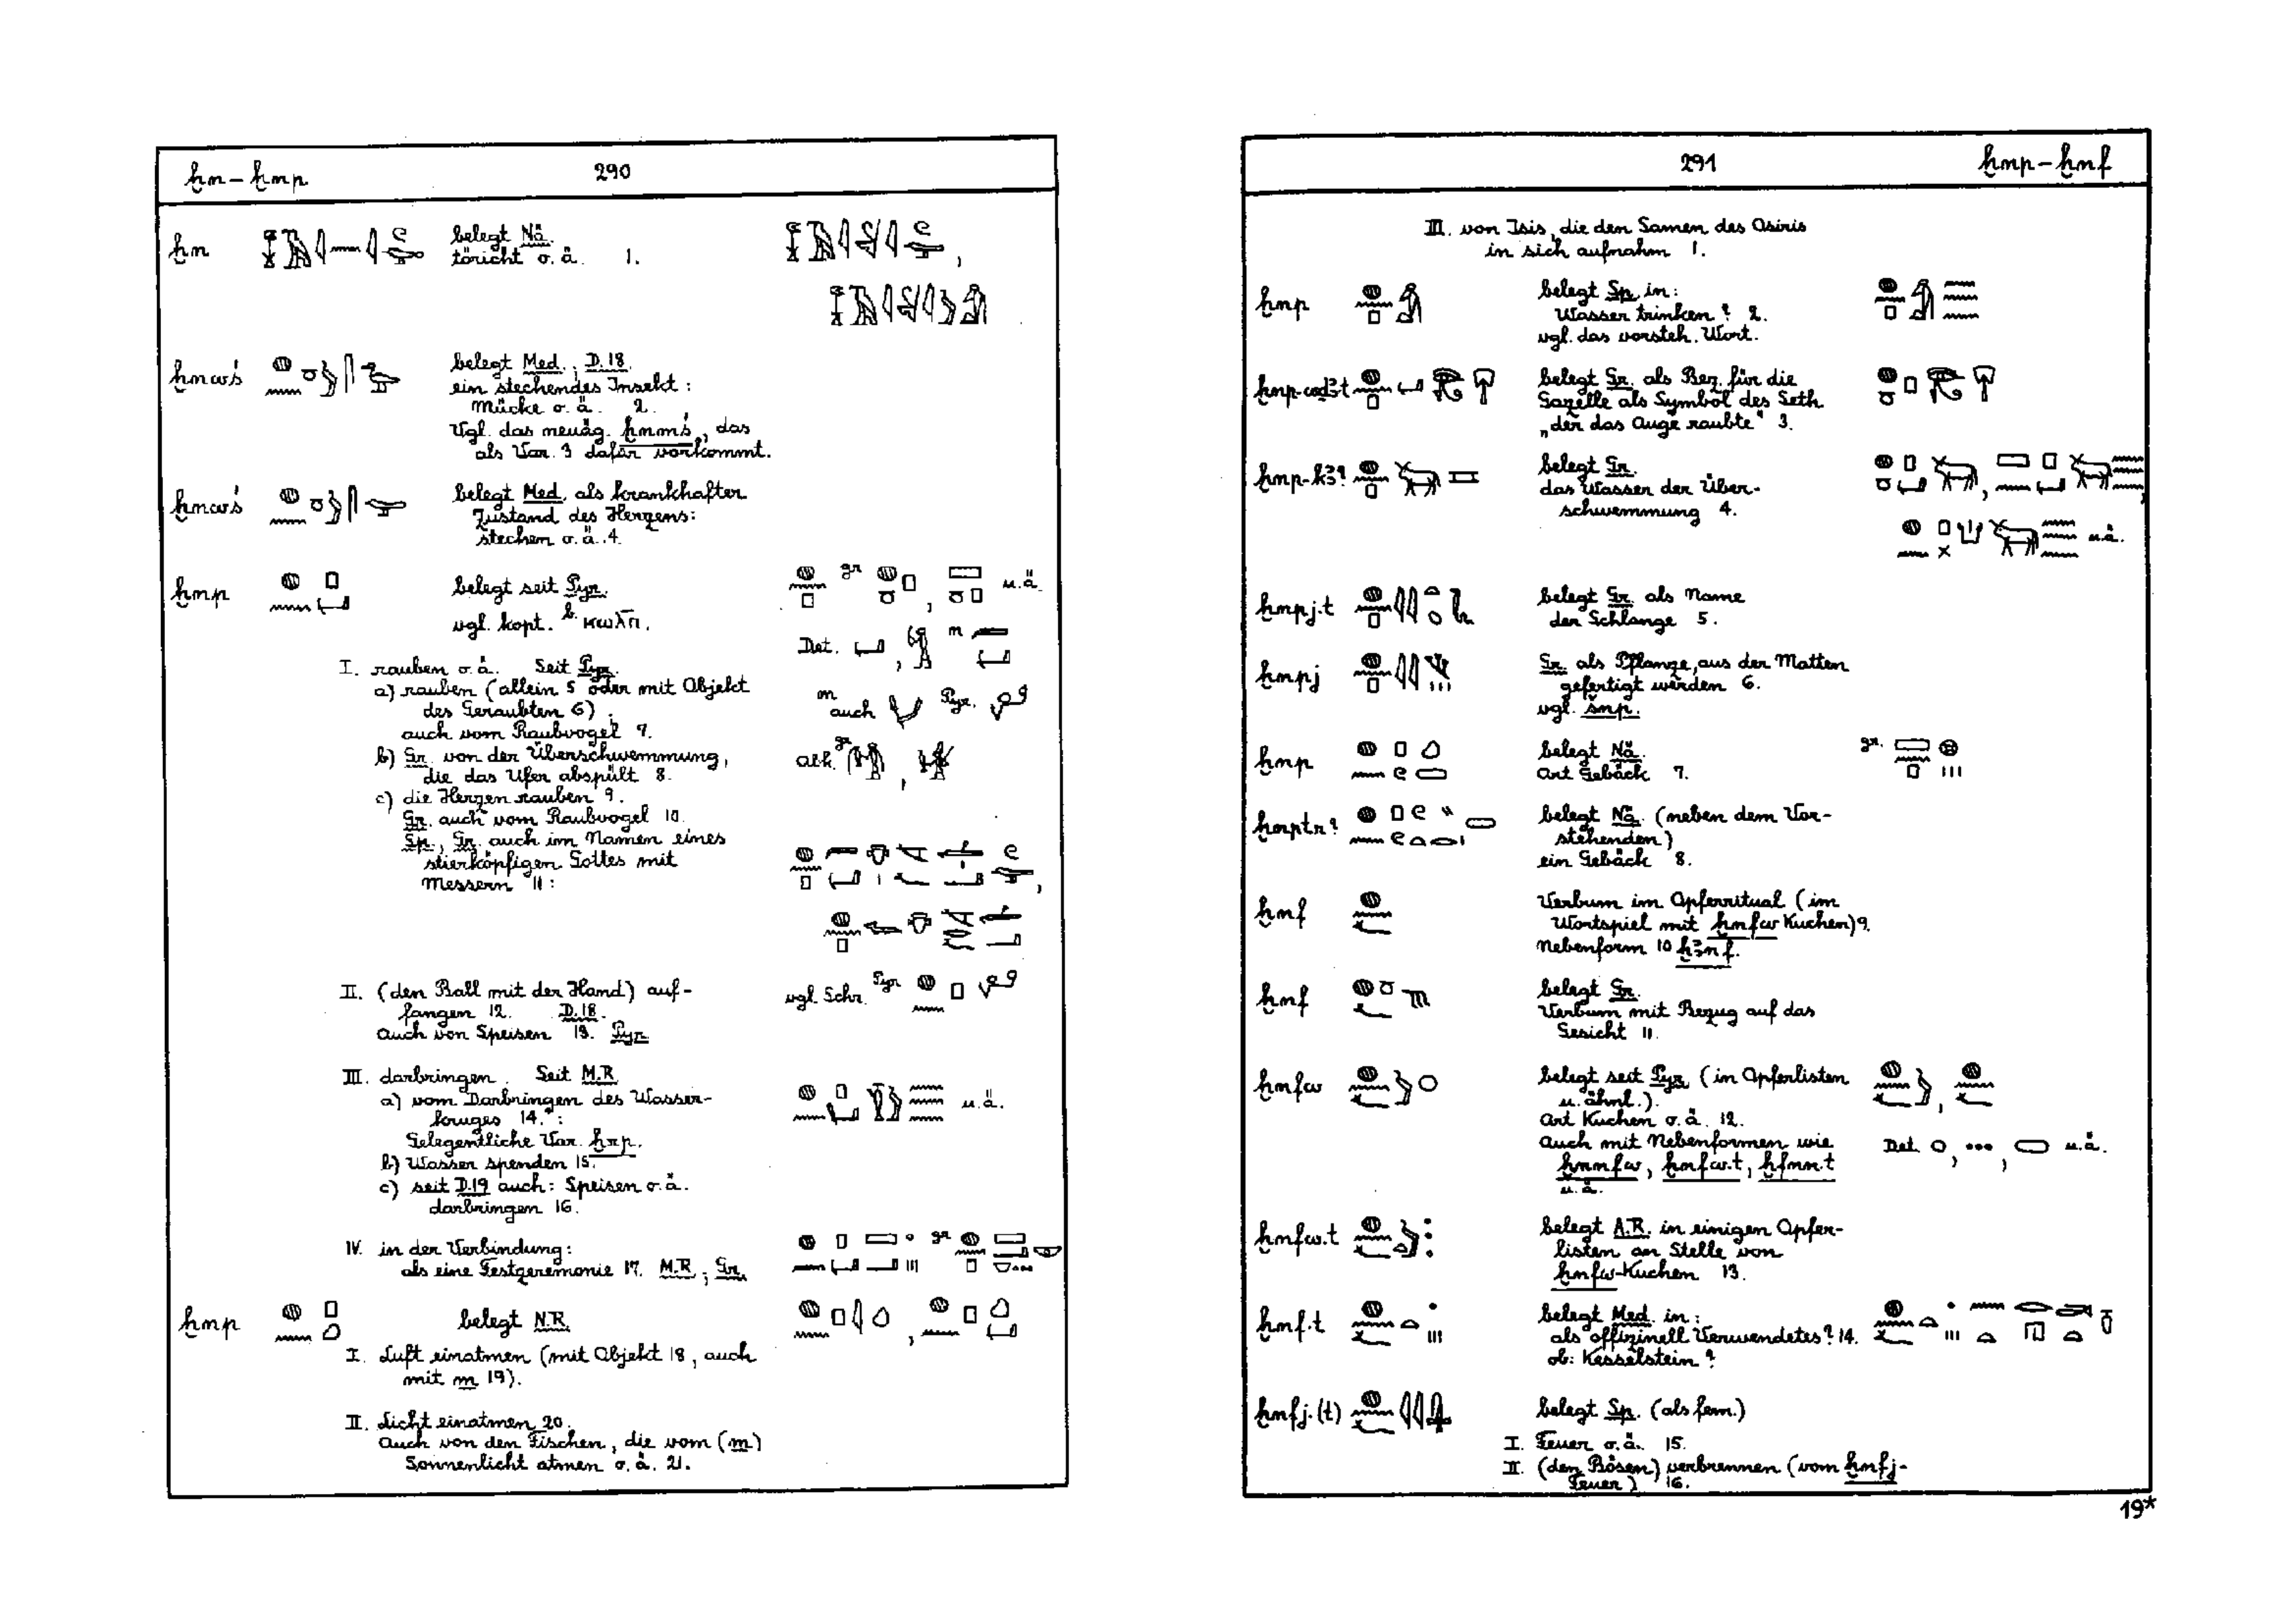 ḫn – ḫnp 290
ḫn belegt Nä.
töricht o. ä. 1.
ḫnws belegt Med.; D. 18.
ein stechendes Insekt:
Mücke o. ä. 2.
Vgl. das neuäg. ḫnms, das
als Var. 3 dafür vorkommt.
ḫnws belegt Med. als krankhafter
Zustand des Herzens:
stechen o. ä. 4.
ḫnp belegt seit Pyr.
vgl. kopt. b. ⲕⲱⲗⲡ.
gr , u. ä.
Det. , m
I. rauben o. ä. Seit Pyr.
a) rauben (allein 5 oder mit Objekt
des Geraubten 6);
auch vom Raubvogel 7.
m auch Pyr.
b) Gr. von der Überschwemmung,
die das Ufer abspült 8.
c) die Herzen rauben 9.
Gr. auch vom Raubvogel 10.
Sp., Gr. auch im Namen eines
stierköpfigen Gottes mit
Messern 11:
II. (den Ball mit der Hand) auf-
fangen 12. D. 18.
auch von Speisen 13. Pyr.
vgl. Schr. Pyr
III. darbringen. Seit M.R.
a) vom Darbringen des Wasser-
kruges 14.: u. ä.
Gelegentliche Var. ḫrp.
b) Wasser spenden 15.
c) seit D.19 auch: Speisen o. ä.
darbringen 16.
IV. in der Verbindung: gr
als eine Festzeremonie 17. M.R.; Gr.
ḫnp belegt N.R.
I. Luft einatmen (mit Objekt 18, auch
mit m 19).
II. Licht einatmen 20.
Auch von den Fischen, die vom (m)
Sonnenlicht atmen o. ä. 21.
291 ḫnp – ḫnf
III. von Isis, die den Samen des Osiris
in sich aufnahm 1.
ḫnp belegt Sp. in:
Wasser trinken? 2.
vgl. das vorsteh. Wort.
ḫnp-wḏꜣ.t belegt Gr. als Bez. für die
Gazelle als Symbol des Seth
„der das Auge raubte" 3.
ḫnp-kꜣ? belegt Gr.
das Wasser der Über-
schwemmung 4.
u. ä.
ḫnpj.t belegt Gr. als Name
der Schlange 5.
ḫnpj Gr. als Pflanze, aus der Matten
gefertigt werden 6.
vgl. šnp.
ḫnp belegt Nä. gr.
Art Gebäck 7.
ḫnptr? belegt Nä. (neben dem Vor-
stehenden)
ein Gebäck 8.
ḫnf Verbum im Opferritual (im
Wortspiel mit ḫnfw Kuchen) 9.
Nebenform 10 ḫꜣnf.
ḫnf belegt Gr.
Verbum mit Bezug auf das
Gesicht 11.
ḫnfw belegt seit Pyr. (in Opferlisten
u. ähnl.).
Art Kuchen o. ä. 12.
Auch mit Nebenformen wie Det. , , u. ä.
ḫnnfw, ḫnfw.t, ḫfnn.t
u. ä.
ḫnfw.t belegt A.R. in einigen Opfer-
listen an Stelle von
ḫnfw-Kuchen 13.
ḫnf.t belegt Med. in:
als offizinell Verwendetes? 14.
ob: Kesselstein?
ḫnfj.(t) belegt Sp. (als fem.)
I. Feuer o. ä. 15.
II. (den Bösen) verbrennen (vom ḫnfj-
Feuer) 16.
19*